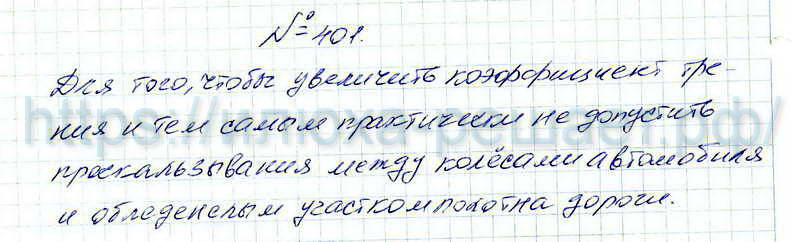 № 401.
Для того, чтобы увеличить коэффициент тре-
ния и тем самым практически не допустить
проскальзывания между колёсами автомобиля
и обледенелым участком полотна дороги.